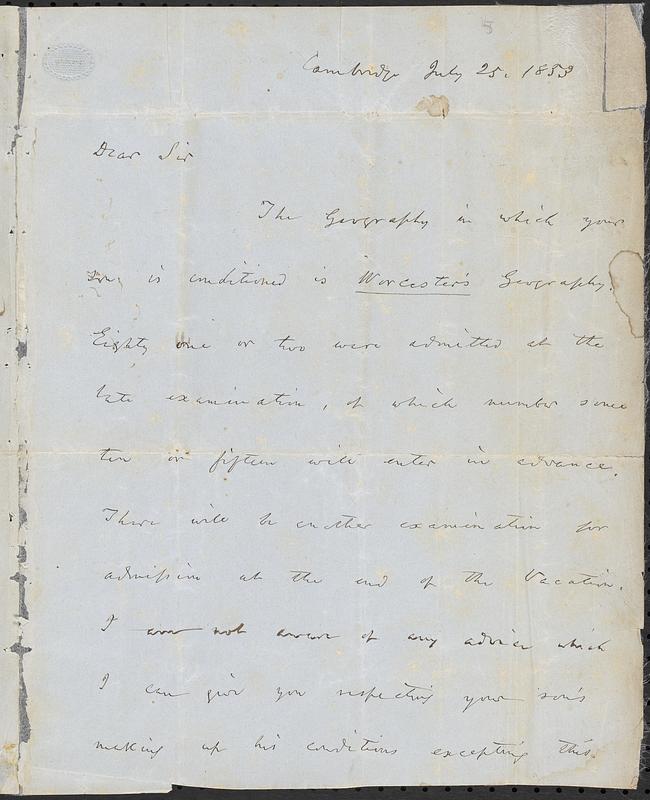 5
Cambridge July 25. 1853
Dear Sir
The Geography in which your
son is conditioned is Worcester's Geography.
Eighty one or two were admitted at the
late examination, of which number some
ten or fifteen will enter in advance.
There will be another examination for
admission at the end of the Vacation.
I am not aware of any advice which
I can give you respecting your son's
making up his conditions excepting this